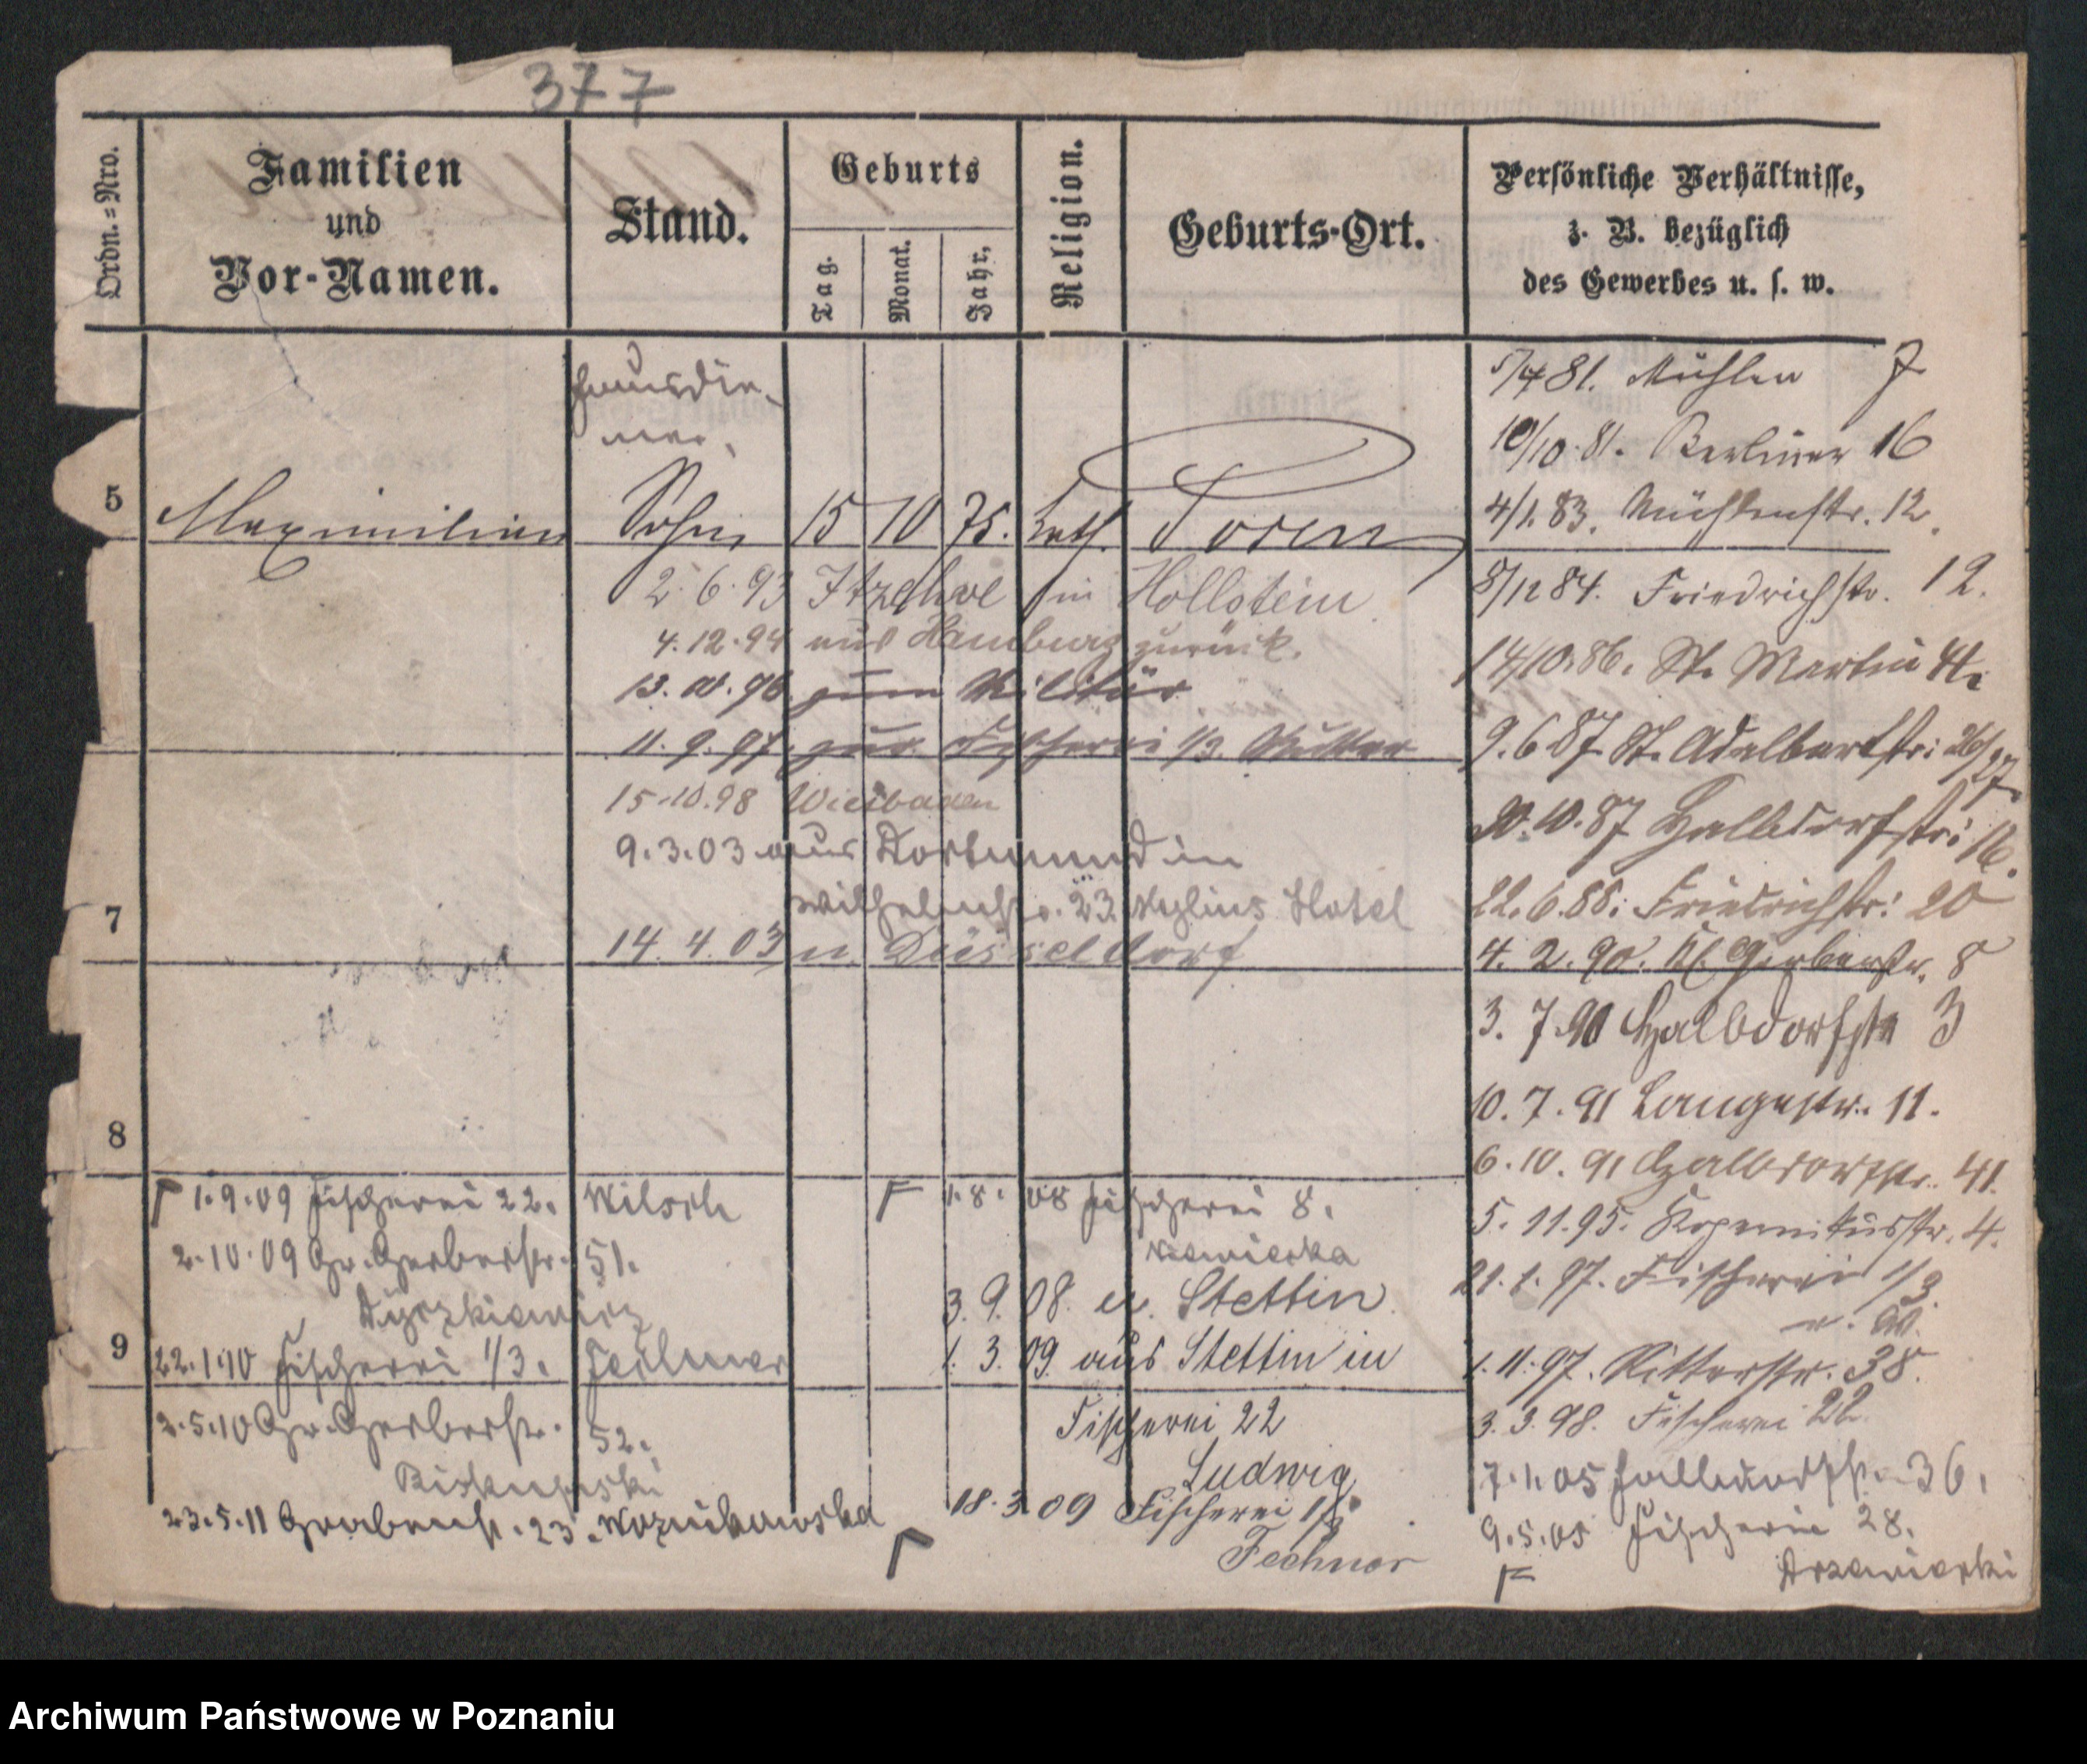 377
Ordn.=Nro.
Familien
und
Vor-Namen.
Stand.
Geburts
Tag.
Monat.
Jahr.
Religion.
Geburts-Ort.
Persönliche Verhältnisse,
z. B. bezüglich
des Gewerbes u. s. w.
Hausdie-
ner.
5 Maximilian Sohn 15 10 75. kath. Posen
2. 6. 93 Itzehoe in Hollstein
4. 12. 94 aus Hamburg zurück.
13. 10. 96 zum Militär
11. 9. 97. zur Fischerei 1/3. Mutter
15.10.98 Wiesbaden
9. 3. 03 aus Dortmund in
Wilhelmstr. 23. Mylius Hotel
7
14. 4. 03 n. Düsseldorf
8
1. 9. 09 Fischerei 22.
2. 10. 09 Gr. Gerberstr. 51.
9
22.1.10 Fischerei 1/3.
2. 5. 10 Gr. Gerberstr. 52.
Biskupski
23. 5. 11 Grabenstr. 23.
1. 8. 08 Fischerei 8.
3. 9. 08. n. Stettin
1. 3. 09 aus Stettin in
Fischerei 22
Ludwig
18. 3. 09 Fischerei 1/3
Fechner
5/4 81. Mühlen 7
10/10. 81. Berliner 16
4/1. 83. Mühlenstr. 12.
8/12 84. Friedrichstr. 12.
14/10. 86. St. Martin
9. 6 87 St. Adalbertstr: 26/27
20. 10. 87 Halbdorfstr: 16.
22. 6. 88: Friedrichstr: 20
4. 2. 90. Kl. Gerberstr. 8
3. 7. 90 Halbdorfstr 3
10. 7. 91 Langestr. 11.
6. 10. 91 Halbdorfstr. 41.
5. 11. 95. Kopernikusstr. 4.
21. 1. 97. Fischerei 1/3.
1. 11. 97. Ritterstr. 38.
3. 3. 98. Fischerei 22.
7. 1. 05 Halbdorfstr. 36.
9. 5. 05 Fischerei 28.
Archiwum Państwowe w Poznaniu